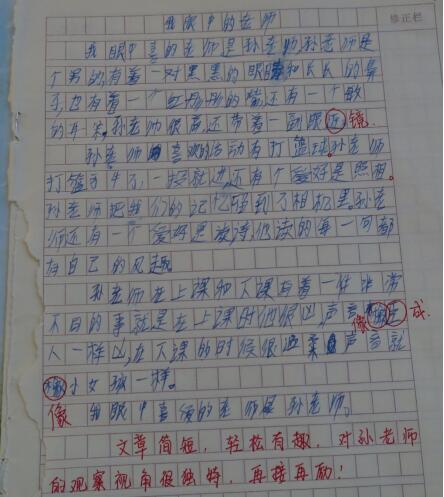 我眼中的老师
修正栏
我眼中喜的老师是孙老师,孙老师是
个男的,有着一对黑黑的眼睛和长长的鼻
子,也有着一个红彤彤的嘴,还有一个
的孙老师很还带着一副眼近镜.
孙老师喜欢的活动有打篮球,孙老师
打篮一投就进,还有个爱好是照相。
孙老师把我们的记忆到了相机里。孙老
师还有一个爱好是读诗,他读的每一句都
有自己的风趣
孙老师在上课和下课有着一件
不同的事就是在上课时他很凶,声音像成
人一样凶,在下课的时候很温柔声音就
像小女孩一样。
像 我眼中喜爱的老师是孙老师。
文章简短,轻松有趣,对孙老师
的观察视角很独特,再接再励!